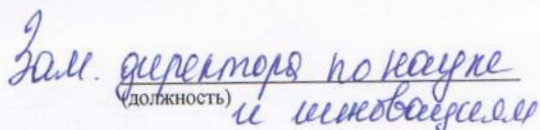 Зам. директора по науке
(должность)
и инновациям